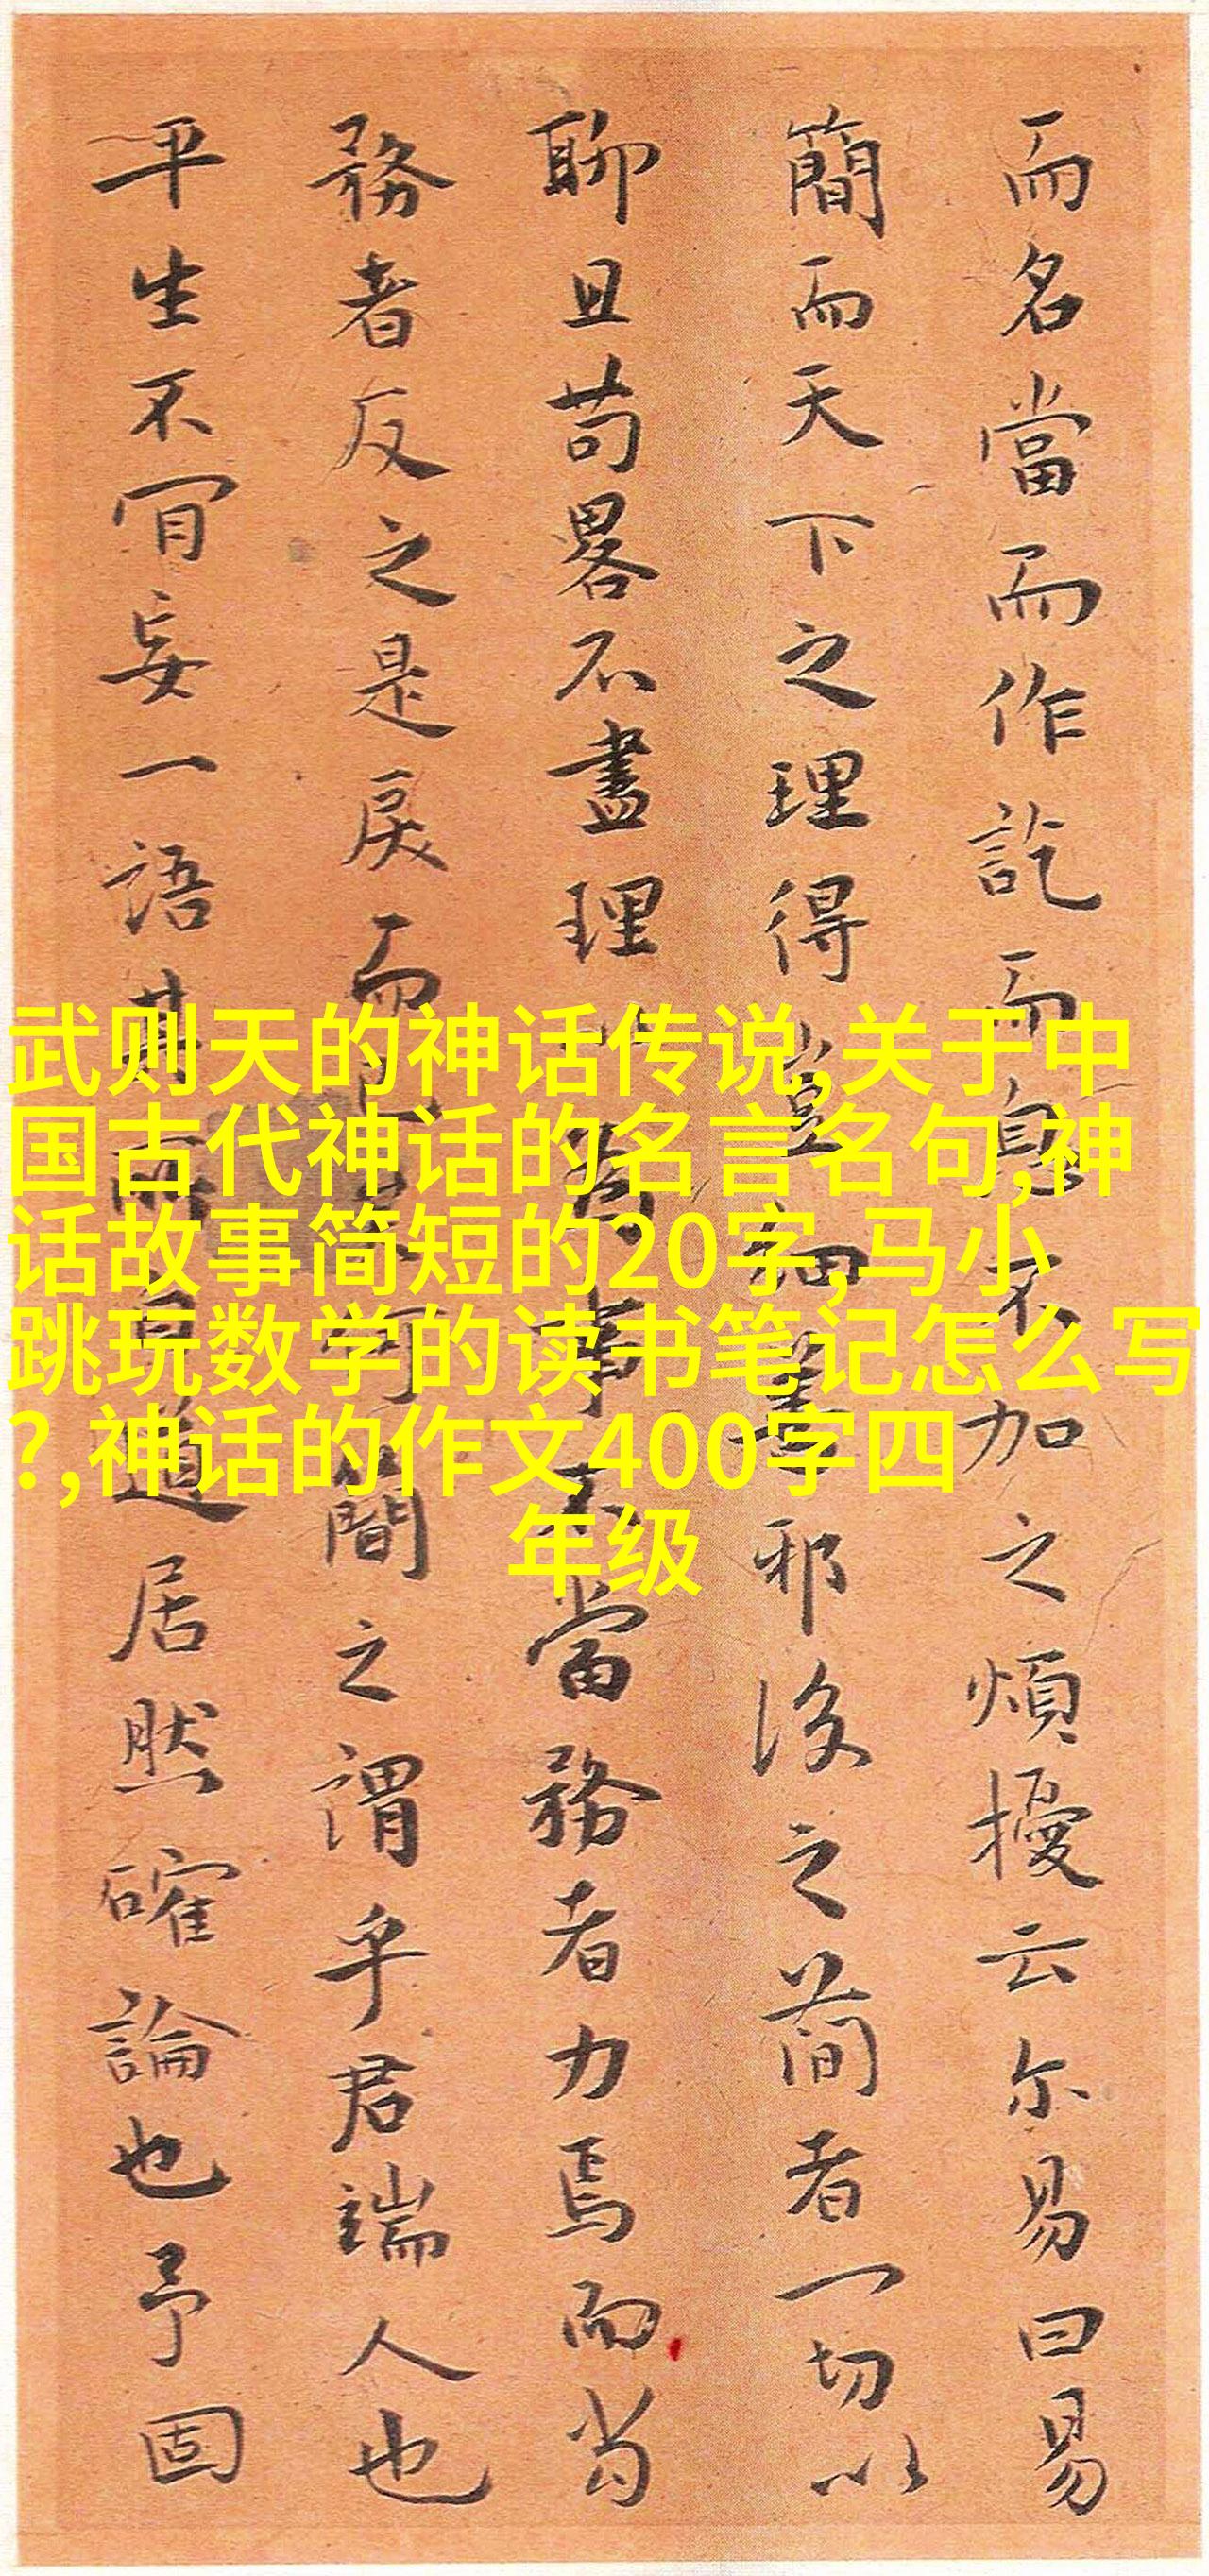 而名當而作訖而自不加之煩擾云尔易曰易
簡而天下之理得豈細筆邪後之简者一切以
聊且苟畧不盡理為事不當務者力焉而当
務者反之是戾而簡之謂乎君端人也
平生不肎妄一語其所自道居然確論也予固
武则天的神话传说,关于中
国古代神话的名言名句,神
话故事简短的20字,马小
跳玩数学的读书笔记怎么写
?,神话的作文400字四
年级